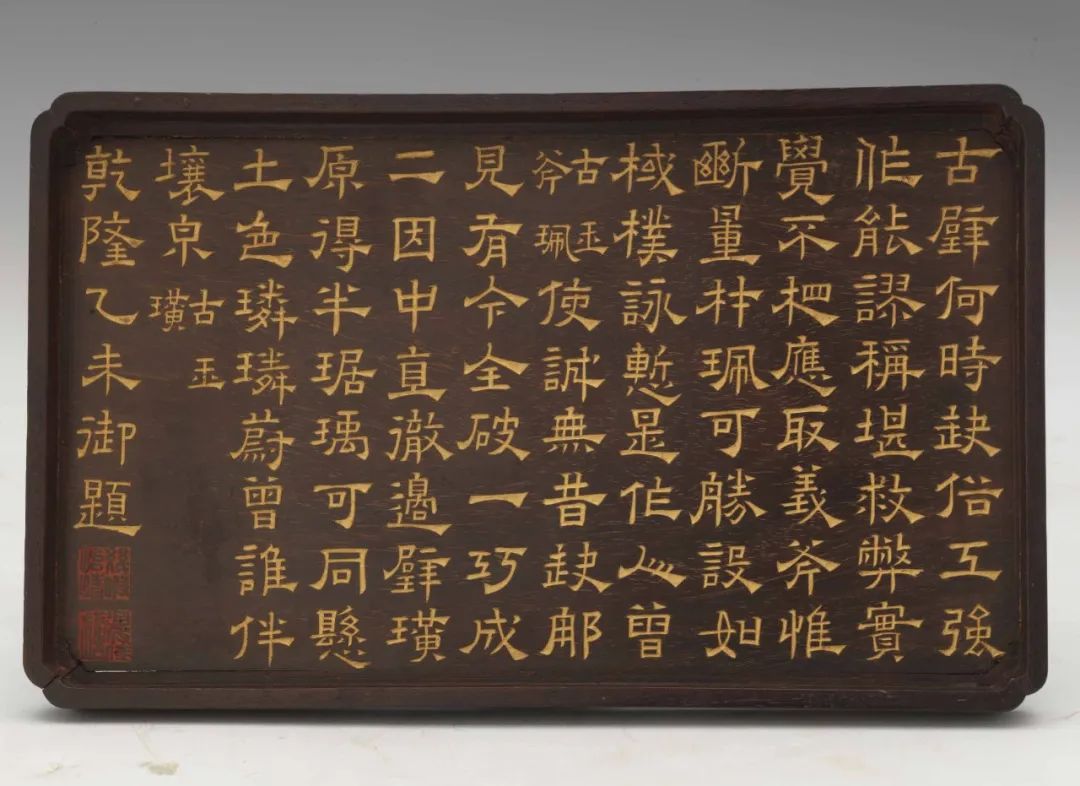 古璧何時缺俗工強
作能謬稱堪救弊實
覺不杷應取義斧惟
斷量材珮可勝設如
棫樸詠慙是作人曾
古玉斧珮使誠無昔缺那
見有今全破一巧成
二因中直徹邊璧璜
原得半琚瑀可同懸
土色璘璘蔚曾誰伴
壤泉古玉璜
乾隆乙未御題